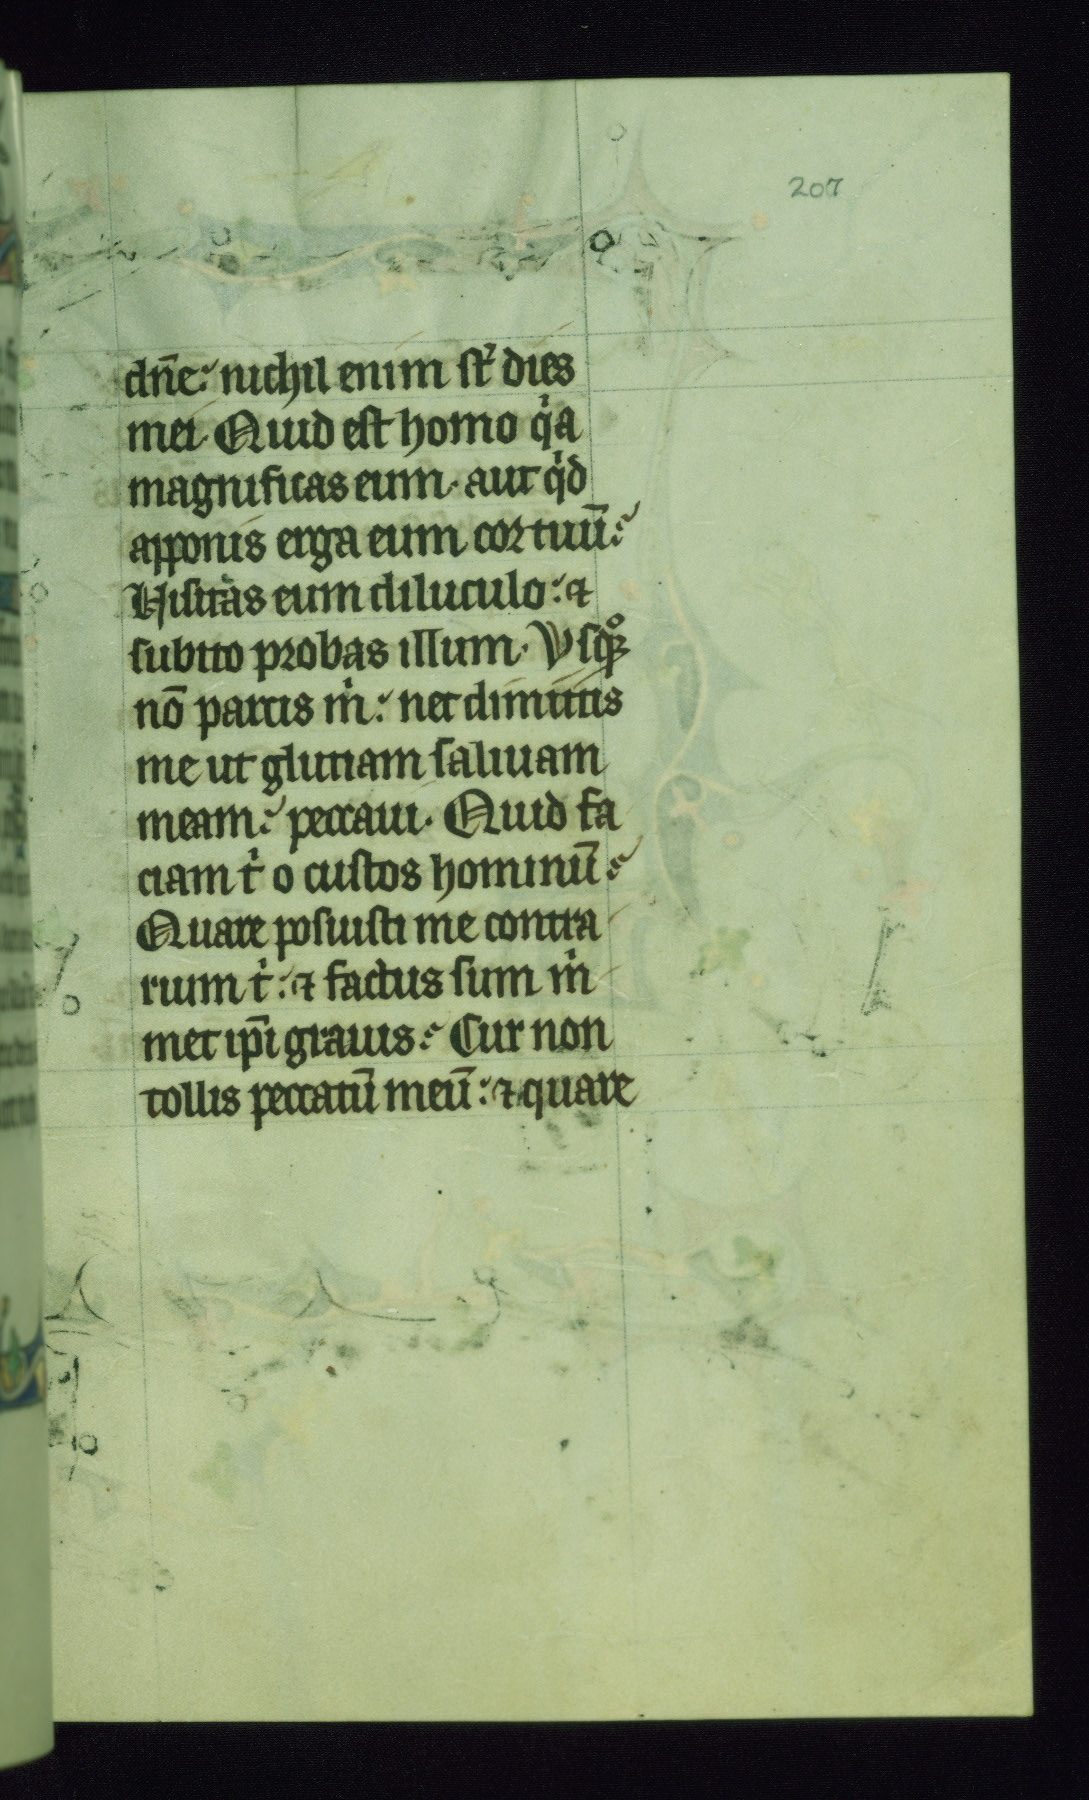 207
dn̄e: nichil enim st̉ dies
mei. Quid est homo qͥa
magnificas eum. aut qͥd
apponis erga eum cor tuū:
Visitas eum diluculo: ⁊
subito probas illum. Vsq̨ꝫͦ
nō parcis mͥ: nec dimittis
me ut glutiam saliuam
meam: peccaui. Quid fa
ciam tͥ o custos hominū:
Quare posuisti me contra
rium tͥ: ⁊ factus sum mͥ
met ip̄i grauis: Cur non
tollis peccatū meū: ⁊ quare